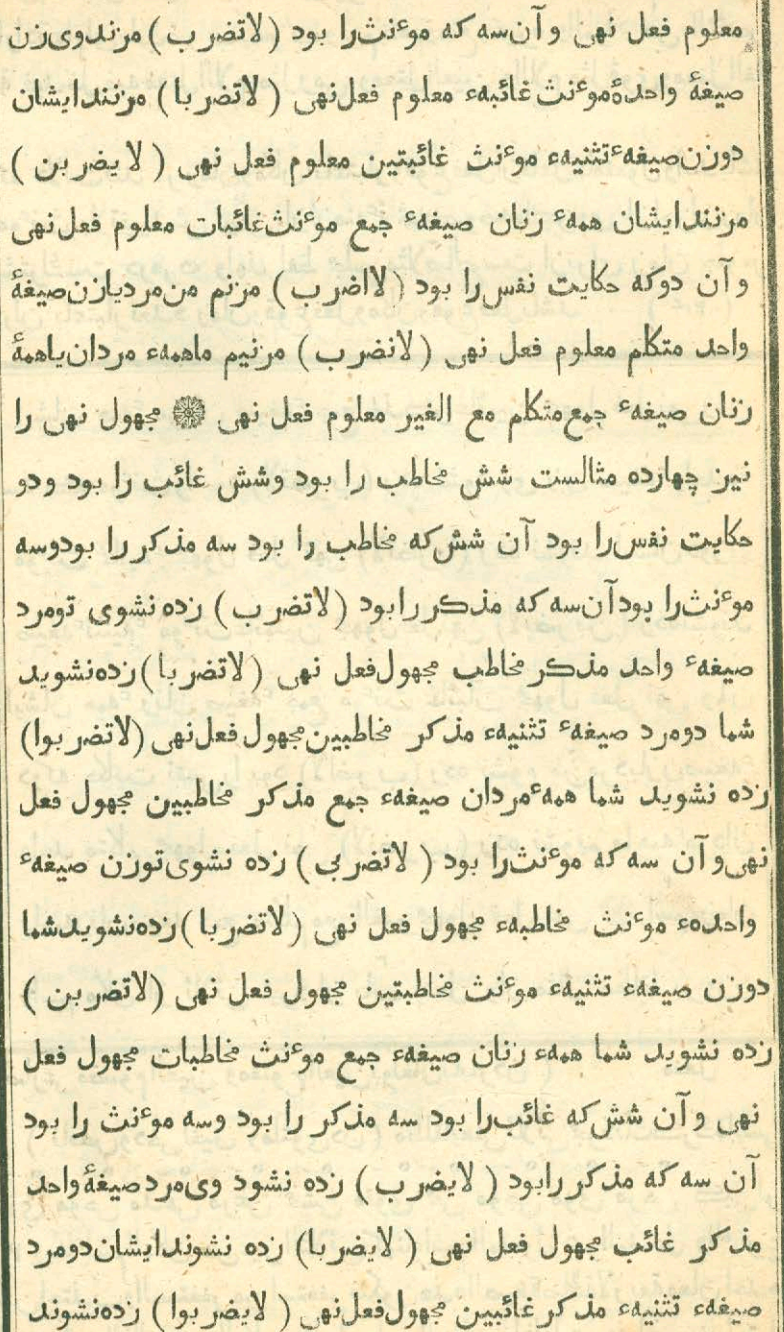 معلوم فعل نهی و آن‌سه که موءنث‌را بود (لاتضرب) مزندوی‌زن
صیغهٔ واحدهٔ‌موءنث غائبهء معلوم فعل‌نهی (لاتضربا) مزنندایشان
دوزن‌صیغهء تثنیهء موءنث غائبتین معلوم فعل نهی (لایضربن)
مزنندایشان همهء زنان صیغهء جمع موءنث‌غائبات معلوم فعل‌نهی
وآن دوکه حکایت نفس‌را بود (لااضرب) مزنم من‌مردیازن‌صیغهٔ
واحد متکلم معلوم فعل نهی (لانضرب) مزنیم ماهمهء مردان‌یاهمهٔ
زنان صیغهء جمع‌متکلم مع الغیر معلوم فعل نهی ۞ مجهول نهی را
نیز چهارده مثالست شش مخاطب را بود وشش غائب را بود ودو
حکایت نفس‌را بود آن شش‌که مخاطب را بود سه مذکررا بودوسه
موءنث‌را بودآن‌سه که مذکررابود (لاتضرب) زده نشوی تومرد
صیغهء واحد مذکر مخاطب مجهول‌فعل نهی (لاتضربا) زده‌نشوید
شما دومرد صیغهء تثنیهء مذکر مخاطبین‌مجهول‌فعل‌نهی (لاتضربوا)
زده نشوید شما همهء مردان صیغهء جمع مذکر مخاطبین مجهول فعل
نهی‌وآن سه که موءنث‌را بود (لاتضربی) زده نشوی‌توزن صیغهء
واحدهء موءنث مخاطبهء مجهول فعل نهی (لاتضربا) زده‌نشویدشما
دوزن صیغهء تثنیهء موءنث مخاطبتین مجهول فعل نهی (لاتضربن)
زده نشوید شما همهء زنان صیغهء جمع موءنث مخاطبات مجهول فعل
نهی و آن شش‌که غائب‌را بود سه مذکر را بود وسه موءنث را بود
آن سه که مذکررابود (لایضرب) زده نشود وی‌مرد صیغهٔ واحد
مذکر غائب مجهول فعل نهی (لایضربا) زده نشوندایشان‌دومرد
صیغهء تثنیهء مذکرغائبین مجهول‌فعل‌نهی (لایضربوا) زده‌نشوند